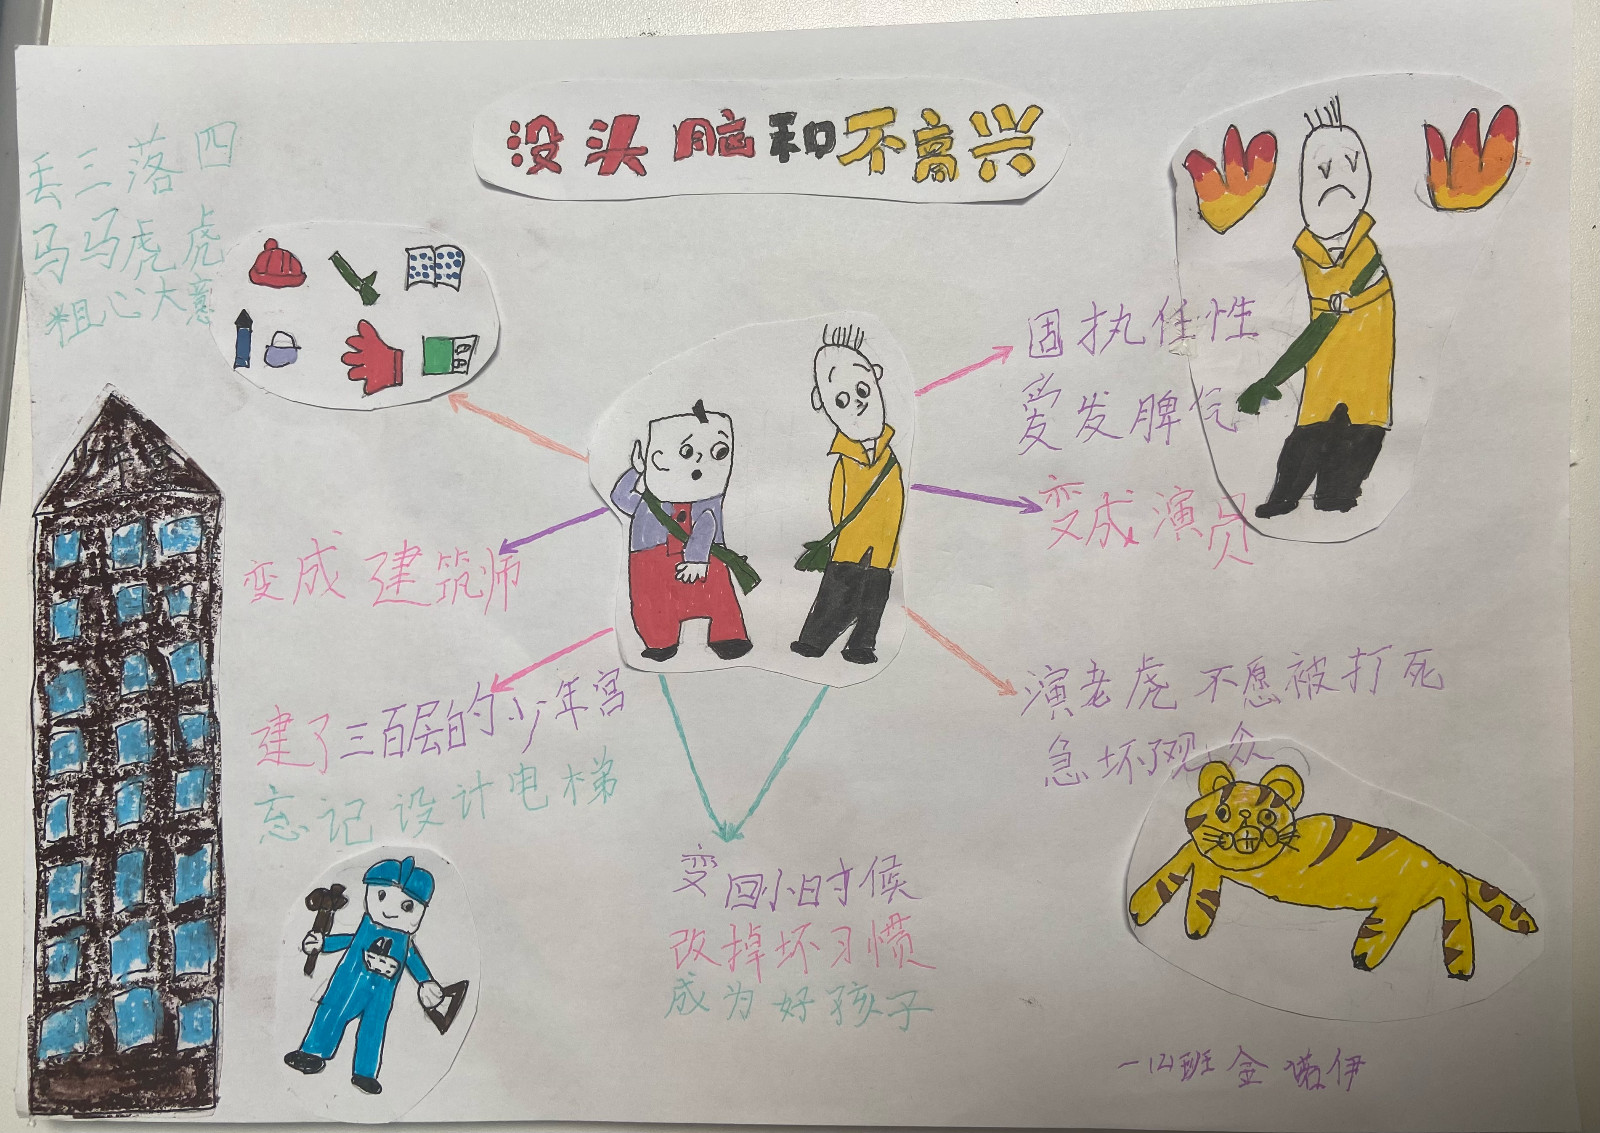 没头脑和不高兴
丢三落四
马马虎虎
粗心大意
固执任性
爱发脾气
变成演员
变成建筑师
建了三百层的少年宫
忘记设计电梯
演老虎不愿被打死
急坏观众
变回小时候
改掉坏习惯
成为好孩子
一(4)班金诺伊